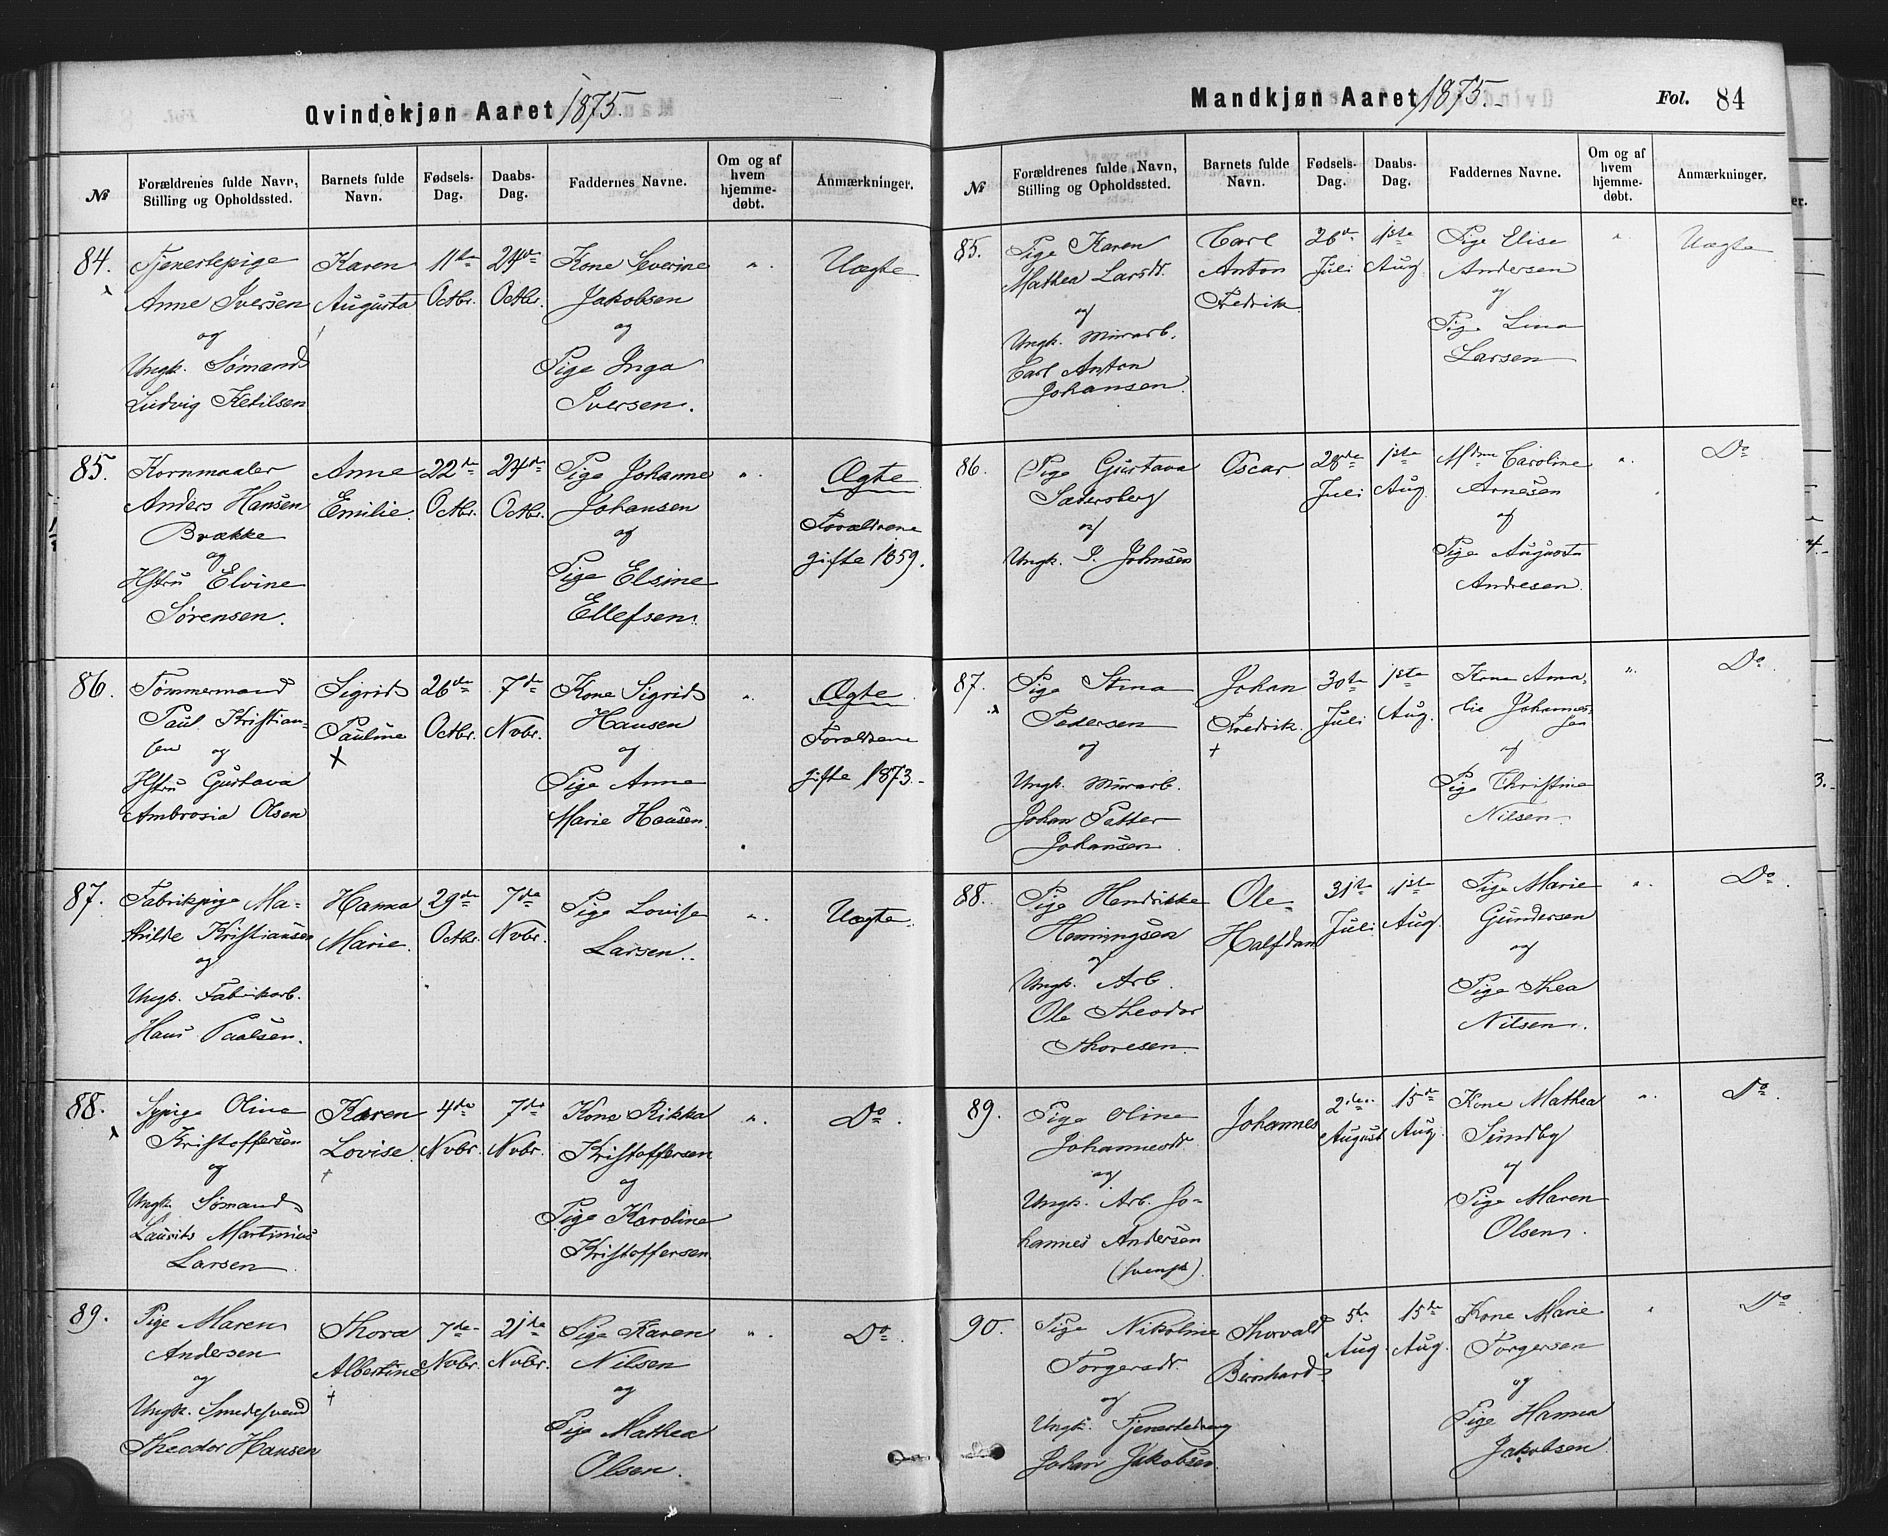 Qvindekjøn Aaret 1875.
№
Forældrenes fulde Navn, Stilling og Opholdssted.
Barnets fulde Navn.
Fødsels-Dag.
Daabs-Dag.
Faddernes Navne.
Om og af hvem hjemmedøbt.
Anmærkninger.
84.
Tjenestepige
Anne Iversen
og
Ungk. Sømand
Ludvig Ketilsen
Karen
Augusta
11te
Octbr.
24de
Octbr.
Kone Severine
Jakobsen
og
Pige Inga
Iversen.
"
Uægte
85.
Kornmaaler
Anders Hansen
Brække
og
Hstru Elvine
Sørensen.
Anne
Emilie.
22de
Octbr.
24de
Octbr.
Pige Johanne
Johansen
og
Pige Elsine
Ellefsen.
"
Ægte
Forældrene
gifte 1859.
86.
Tømmermand
Paul Kristian-
sen og
Hstru Gustava
Ambrosia Olsen
Sigrid
Pauline
+
26de
Octbr.
7de
Novbr.
Kone Sigrid
Hansen
og
Pige Anne
Marie Hansen.
"
Ægte
Forældrene
gifte 1873.
87.
Fabrikpige Ma-
thilde Kristiansen
og
Ungk. Fabrikarb.
Hans Paalsen.
Hanna
Marie.
29de
Octbr.
7de
Novbr.
Pige Lovise
Larsen.
"
Uægte.
88.
Sypige Oline
Kristoffersen
og
Ungk. Sømand
Laurits Martinius
Larsen
Karen
Lovise.
+
4de
Novbr.
7de
Novbr.
Kone Rikka
Kristoffersen
og
Pige Karoline
Kristoffersen.
"
Do.
89.
Pige Maren
Andersen
og
Ungk. Smedesvend
Theodor Hansen
Thora
Albertine
+
7de
Novbr.
21de
Novbr.
Pige Karen
Nilsen
og
Pige Mathea
Olsen.
"
Do.
Mandkjøn Aaret 1875.
Fol. 84
№
Forældrenes fulde Navn, Stilling og Opholdssted.
Barnets fulde Navn.
Fødsels-Dag.
Daabs-Dag.
Faddernes Navne.
Om og af hvem hjemmedøbt.
Anmærkninger.
85.
Pige Karen
Mathea Larsdt.
og
Ungk. Murarb.
Carl Anton
Johansen.
Carl
Anton
Fredrik.
26de
Juli
1ste
Aug.
Pige Elise
Andersen
og
Pige Lina
Larsen
"
Uægte
86.
Pige Gustava
Sætersberg
og
Ungk. P. Johnsen
Oscar
28de
Juli
1ste
Aug.
Mdme Caroline
Arnesen
og
Pige Augusta
Andresen.
"
Do
87.
Pige Stina
Pedersen
og
Ungk. Murarb.
Johan Petter
Johansen.
Johan
Fredrik.
+
30te
Juli
1ste
Aug.
Kone Ama-
lie Johannes-
sen
og
Pige Christine
Nilsen.
"
Do.
88.
Pige Hendrikke
Henningsen
og
Ungk. Arb.
Ole Theodor
Thoresen.
Ole
Halfdan
31te
Juli
1ste
Aug.
Pige Marie
Gundersen
og
Pige Thea
Nilsen.
"
Do.
89.
Pige Oline
Johannesdt.
og
Ungk. Arb. Jo-
hannes Andersen
(svensk).
Johannes
2den
August
15de
Aug.
Kone Mathea
Sundby
og
Pige Maren
Olsen.
"
Do.
90.
Pige Nikoline
Torgersdt.
og
Ungk. Tjenestedreng
Johan Jakobsen.
Thorvald
Bernhard
5te
Aug.
15de
Aug.
Kone Marie
Torgersen
og
Pige Hanna
Jakobsen.
"
Do